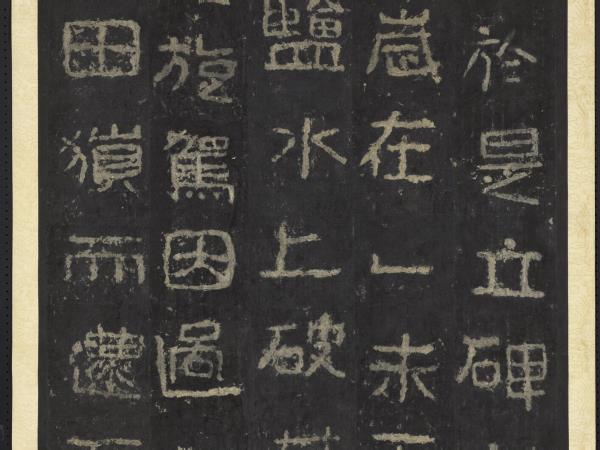 於是立碑
歲在乙未
鹽水上破
旋駕因過
田而